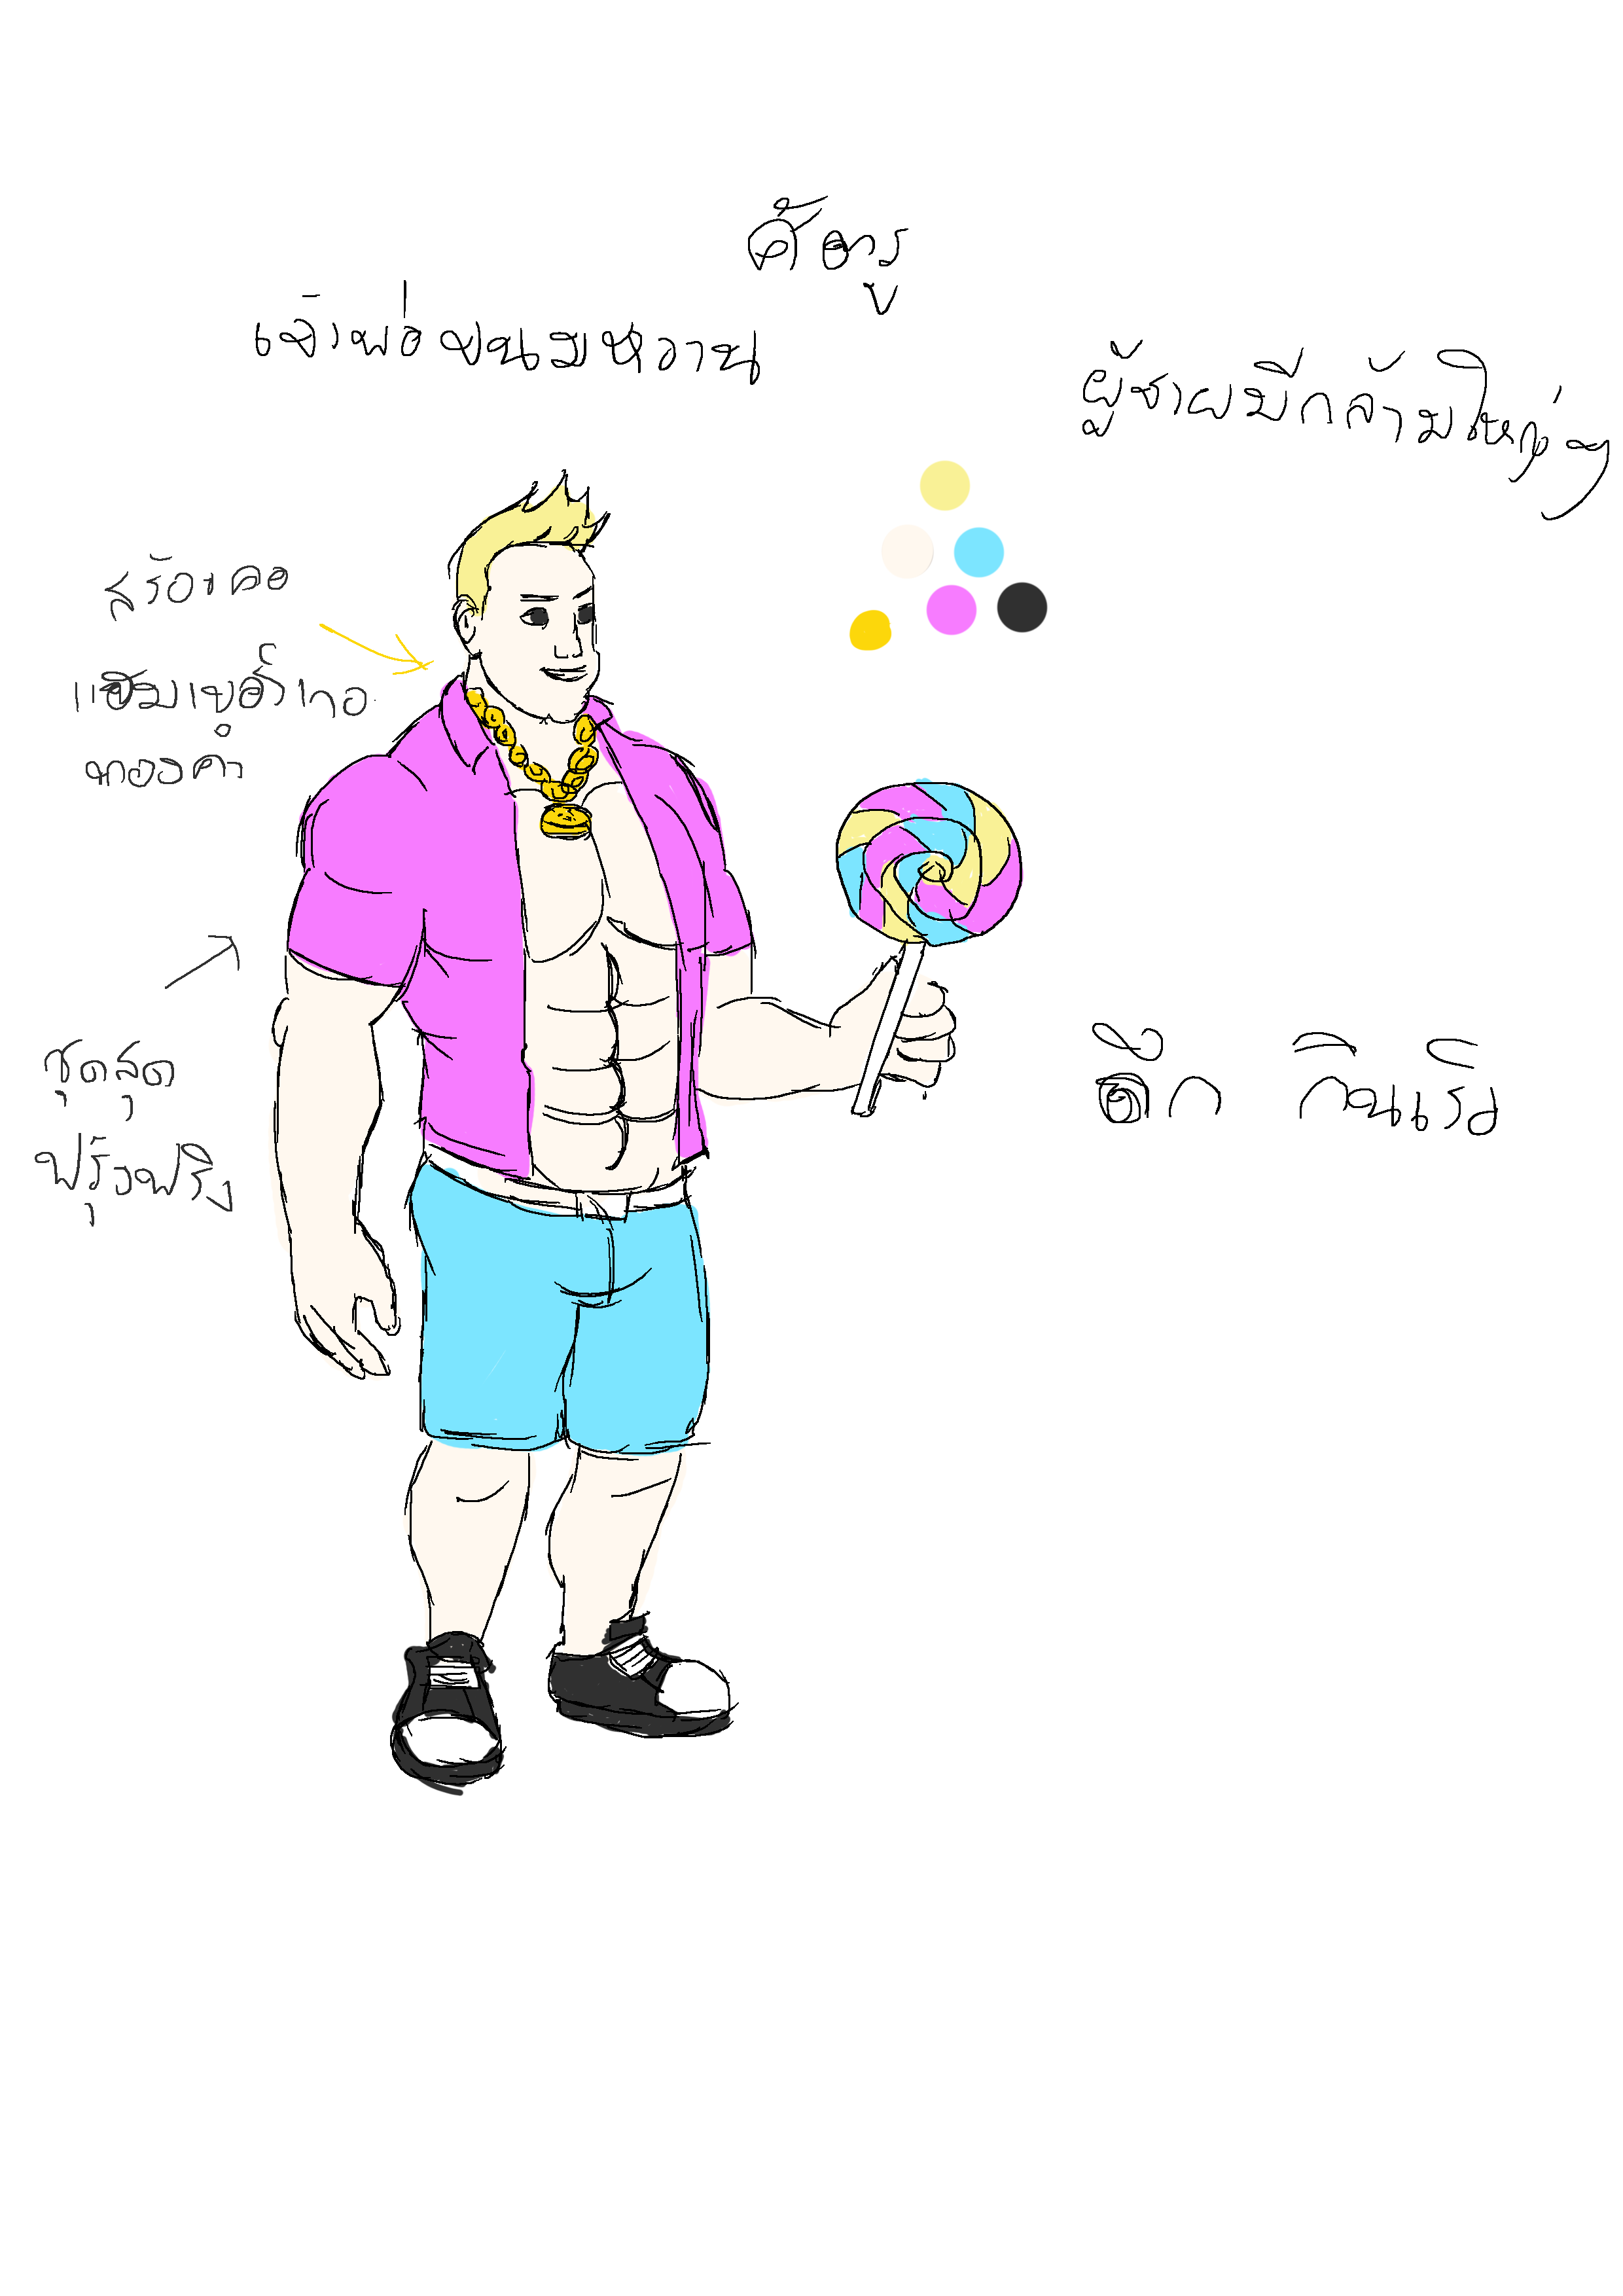 ศัตรู
เจ้าพ่อขนมหวาน
ผู้ชายมีกล้ามใหญ่ๆ
สร้อยคอ
แฮมเบอร์เกอ
ทองคำ
ชุดสุด
ฟรุ้งฟริ้ง
ตึก กินเริง